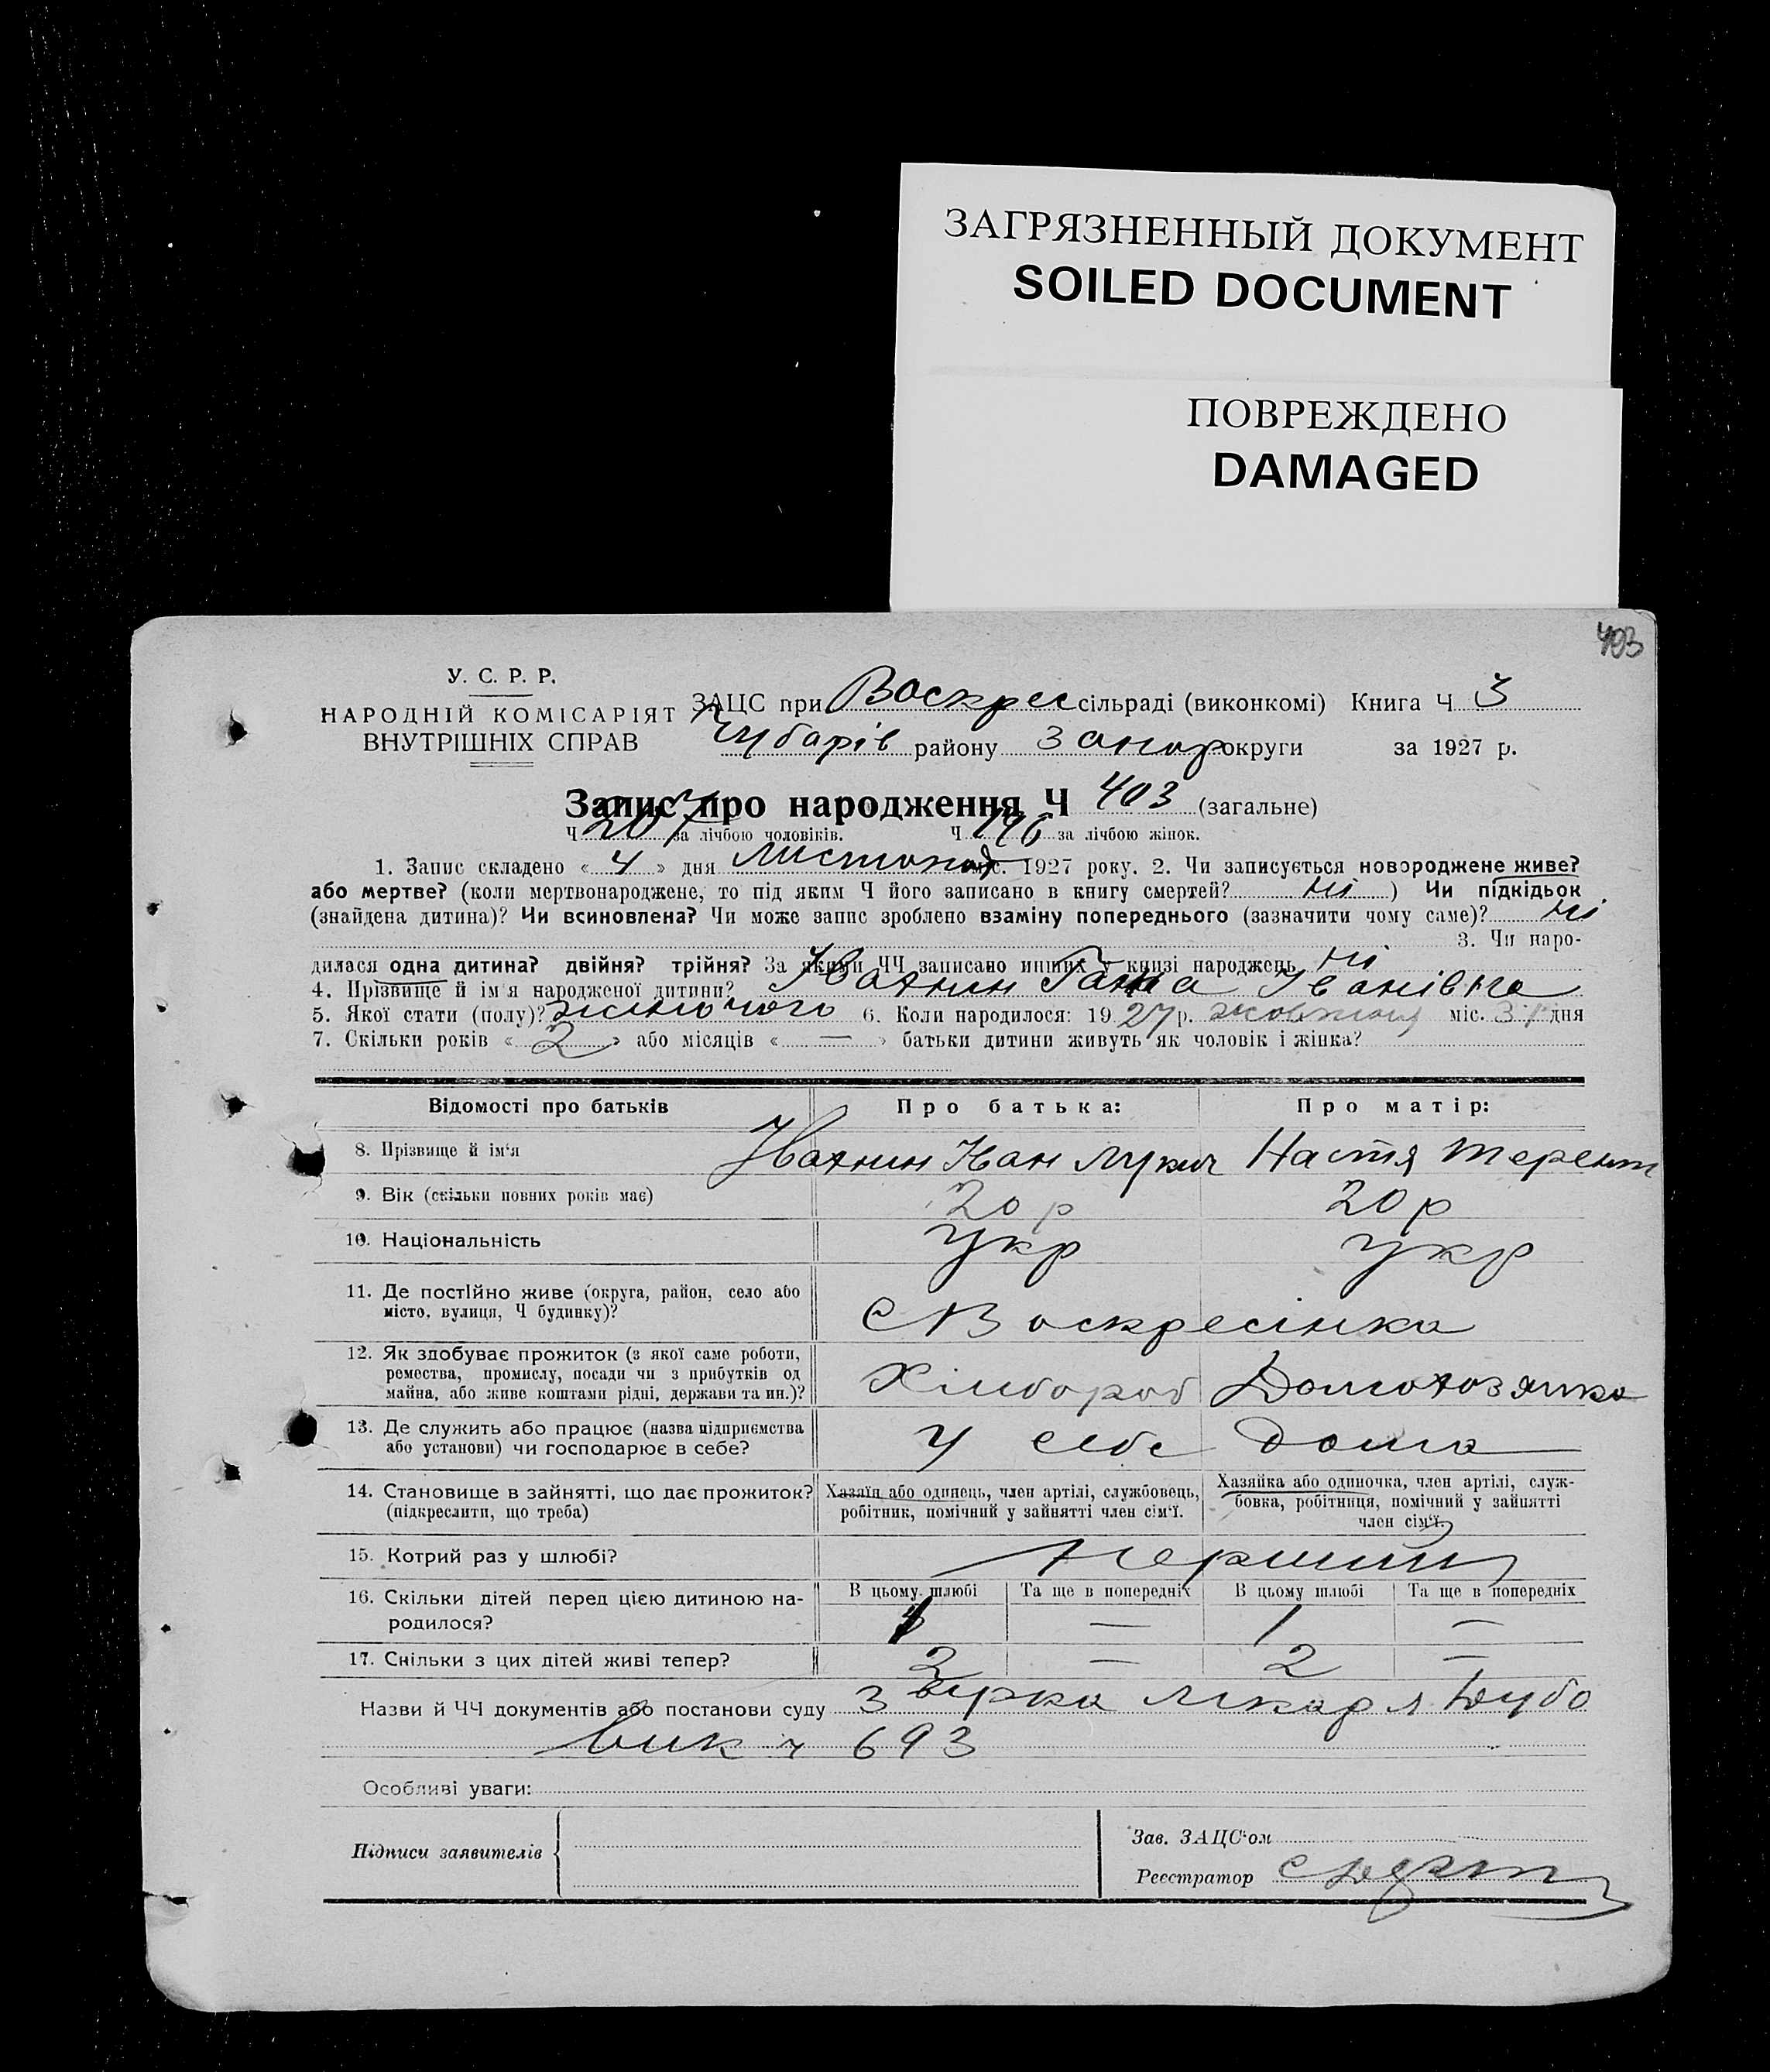 ЗАГРЯЗНЕННЫЙ ДОКУМЕНТ
SOILED DOCUMENT
ПОВРЕЖДЕНО
DAMAGED
403
У. С. Р. Р.
НАРОДНІЙ КОМІСАРІЯТ
ВНУТРІШНІХ СПРАВ
ЗАЦС при Воскрес сільраді (виконкомі) Книга Ч 3
Чубарів району Запор округи за 1927 р.
Запис про народження Ч 403 (загальне)
Ч 207 за лічбою чоловіків. Ч 196 за лічбою жінок.
1. Запис складено « 4 » дня Листопад міс. 1927 року. 2. Чи записується новороджене живе?
або мертве? (коли мертвонароджене, то під яким Ч його записано в книгу смертей? ні ) Чи підкідьок
(знайдена дитина)? Чи всиновлена? Чи може запис зроблено взаміну попереднього (зазначити чому саме)? ні
3. Чи наро-
дилася одна дитина? двійня? трійня? За якими ЧЧ записано инших у книзі народжень ні
4. Прізвище й ім'я народженої дитини? Ганна Іванівна
5. Якої стати (полу)? жіночого 6. Коли народилося: 1927 р. жовтня міс. 31 дня
7. Скільки років « 2 » або місяців « — » батьки дитини живуть як чоловік і жінка?
Відомості про батьків Про батька: Про матір:
8. Прізвище й ім'я Іван Лукич Настя Терент
9. Вік (скільки повних років має) 20 р 20 р
10. Національність Укр Укр
11. Де постійно живе (округа, район, село або
місто, вулиця, Ч будинку)? С Воскресінка
12. Як здобуває прожиток (з якої саме роботи,
ремества, промислу, посади чи з прибутків од
майна, або живе коштами рідні, держави та ин.)? Хлібороб Домохозяйка
13. Де служить або працює (назва підприємства
або установи) чи господарює в себе? У себе Дома
14. Становище в зайнятті, що дає прожиток?
(підкреслити, що треба)
Хазяїн або одинець, член артілі, службовець,
робітник, помічний у зайнятті член сім'ї.
Хазяйка або одиночка, член артілі, служ-
бовка, робітниця, помічний у зайнятті
член сім'ї.
15. Котрий раз у шлюбі? Перший
16. Скільки дітей перед цією дитиною на-
родилося?
В цьому шлюбі Та ще в попередніх В цьому шлюбі Та ще в попередніх
1 — 1 —
17. Скільки з цих дітей живі тепер? 2 — 2 —
Назви й ЧЧ документів або постанови суду лікаря Дубо
вик ч 693
Особливі уваги:
Підписи заявителів
Зав. ЗАЦС'ом
Реєстратор